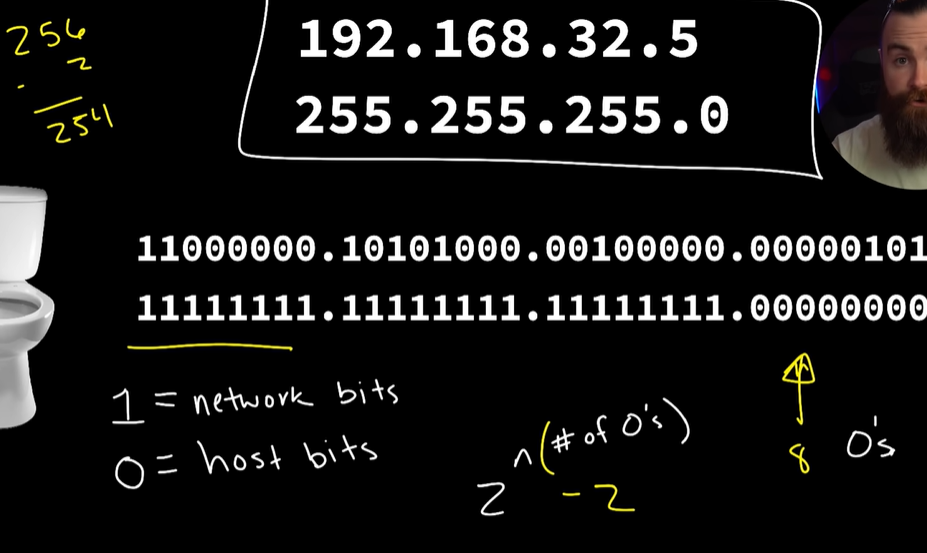 256
- 2
254
192.168.32.5
255.255.255.0
11000000.10101000.00100000.00000101
11111111.11111111.11111111.00000000
1 = network bits
0 = host bits
2^n (# of 0's) - 2
8 0's